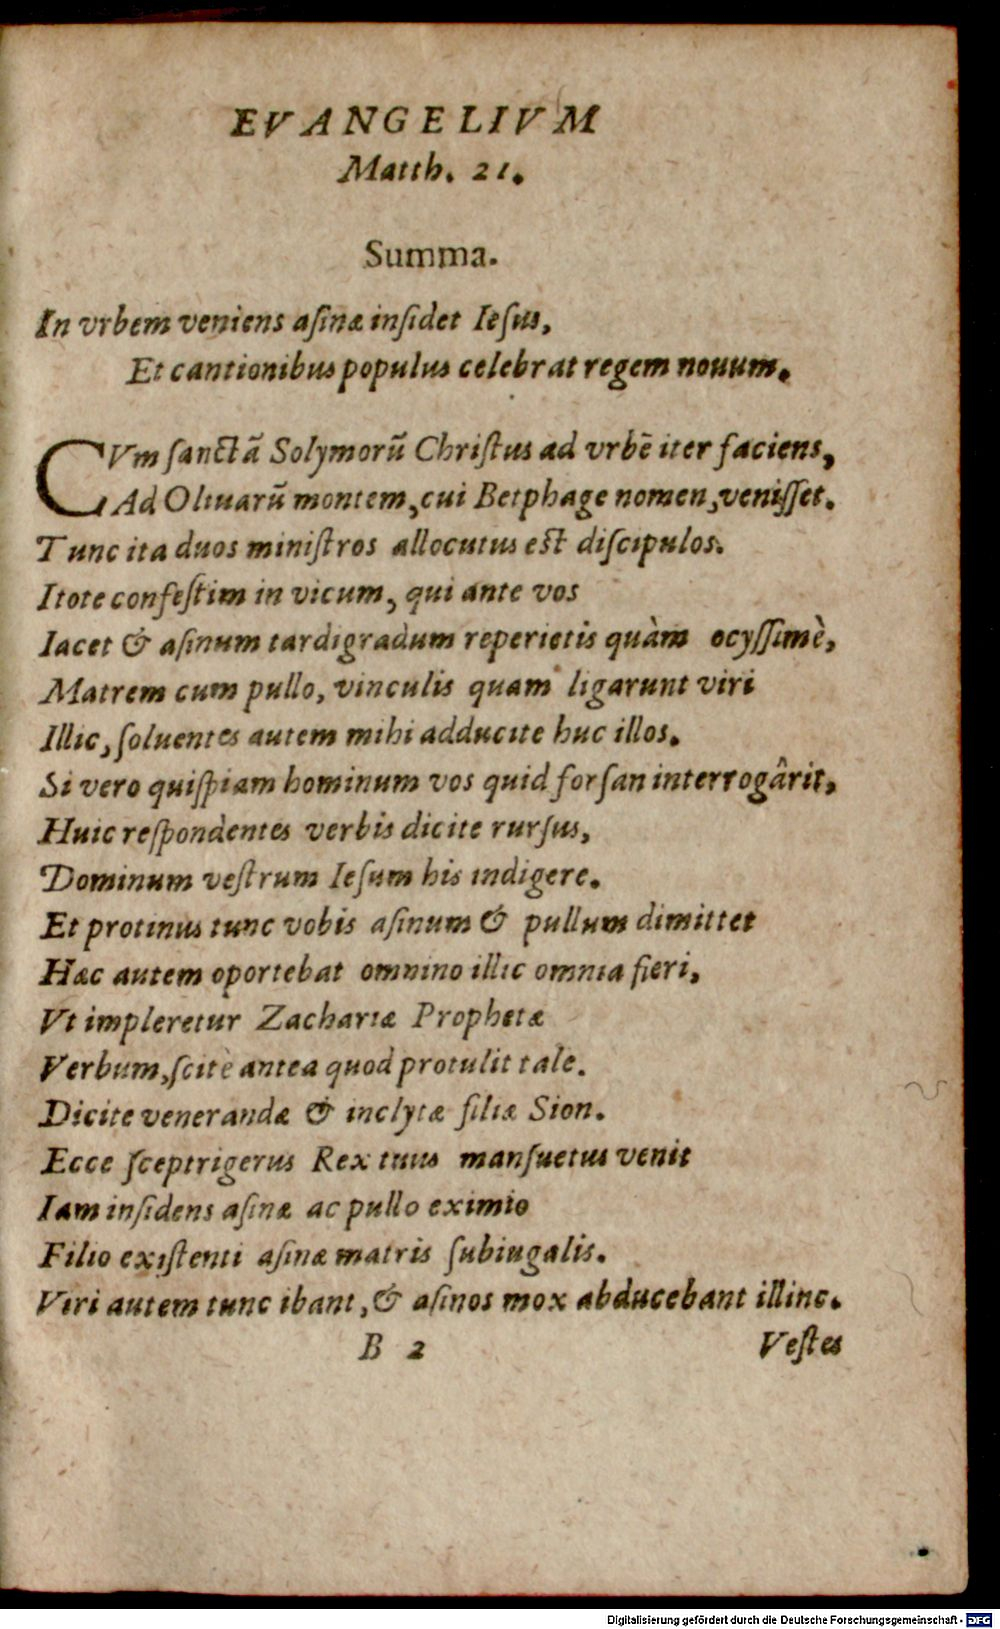 EVANGELIVM
Matth. 21.
Summa.
In vrbem veniens asinæ insidet Iesus,
Et cantionibus populus celebrat regem nouum.
CVm sanctã Solymorũ Christus ad vrbẽ iter faciens,
Ad Oliuarũ montem, cui Betphage nomen, venisset.
Tunc ita duos ministros allocutus est discipulos.
Itote confestim in vicum, qui ante vos
Iacet & asinum tardigradum reperietis quàm ocyssimè,
Matrem cum pullo, vinculis quam ligarunt viri
Illic, soluentes autem mihi adducite huc illos.
Si vero quispiam hominum vos quid forsan interrogârit,
Huic respondentes verbis dicite rursus,
Dominum vestrum Iesum his indigere.
Et protinus tunc vobis asinum & pullum dimittet
Hæc autem oportebat omnino illic omnia fieri,
Vt impleretur Zachariæ Prophetæ
Verbum, scitè antea quod protulit tale.
Dicite venerandæ & inclytæ filiæ Sion.
Ecce sceptrigerus Rex tuus mansuetus venit
Iam insidens asinæ ac pullo eximio
Filio existenti asinæ matris subiugalis.
Viri autem tunc ibant, & asinos mox abducebant illinc.
B 2 Vestes
Digitalisierung gefördert durch die Deutsche Forschungsgemeinschaft - DFG